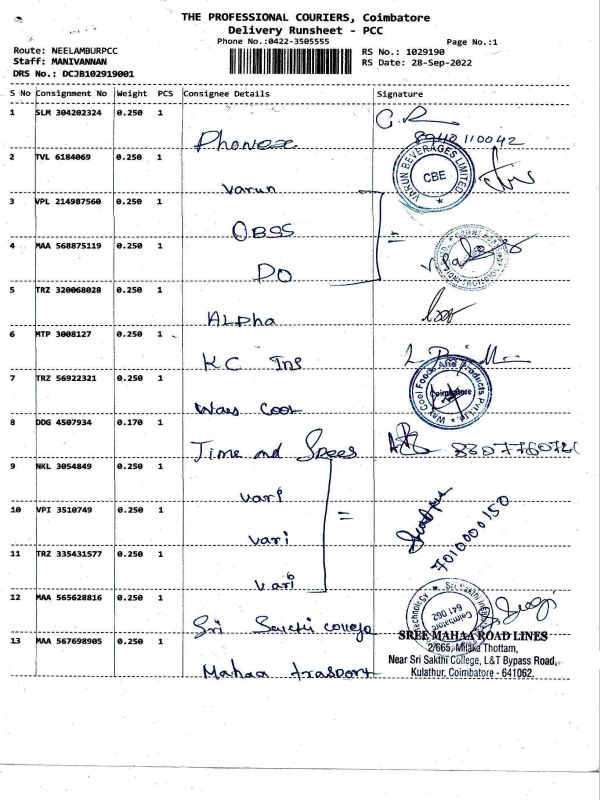 THE PROFESSIONAL COURIERS, Coimbatore
Delivery Runsheet - PCC
Phone No.:0422-3505555
Page No.:1
Route: NEELAMBURPCC
Staff: MANIVANNAN
DRS No.: DCJB102919001
RS No.: 1029190
RS Date: 28-Sep-2022
S No Consignment No Weight PCS Consignee Details Signature
1 SLM 304202324 0.250 1
Phonex
2 TVL 6184069 0.250 1
Varun
VARUN BEVERAGES LIMITED
CBE
3 VPL 214987560 0.250 1
OBSS
4 MAA 568875119 0.250 1
DO
5 TRZ 320068028 0.250 1
ALPha
6 MTP 3008127 0.250 1
KC Ins
7 TRZ 56922321 0.250 1
Ways Cool
Way Cool Foods And Products Pvt Ltd
Coimbatore
8 DDG 4507934 0.170 1
Time and Spees
9 NKL 3054849 0.250 1
vari
10 VPI 3510749 0.250 1
vari
7010000150
11 TRZ 335431577 0.250 1
vari
12 MAA 565628816 0.250 1
Sri Sakthi college
Coimbatore
641 062
13 MAA 567698905 0.250 1
Mahaa trasport
SREE MAHAA ROAD LINES
2/665, Milaka Thottam,
Near Sri Sakthi College, L&T Bypass Road,
Kulathur, Coimbatore - 641062.